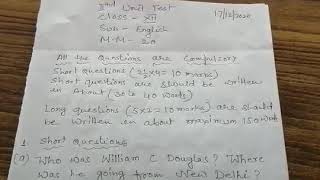 3rd Unit Test
Class - XII
17/12/2020
Sub - English
M.M - 20
All the Questions are Compulsory
Short Questions (2½x4 = 10 marks)
Short questions are should be written
in About (30 to 40 words)
Long questions (5x2 = 10 marks) are should
be written in about maximum 150 words
1. Short Questions
(a) Who was William C Douglas? Where
was he going from New Delhi?